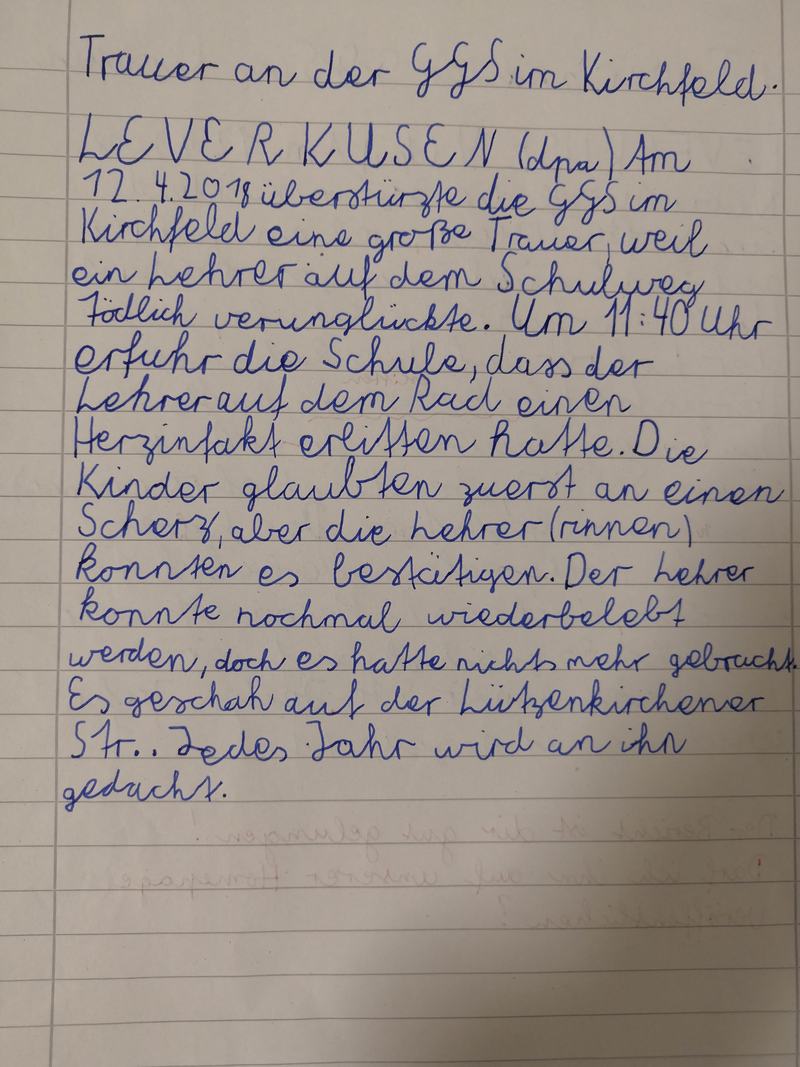 Trauer an der GGS im Kirchfeld.
LEVERKUSEN (dpa) Am
12.4.2018 überstürzte die GGS im
Kirchfeld eine große Trauer, weil
ein Lehrer auf dem Schulweg
tödlich verunglückte. Um 11:40 Uhr
erfuhr die Schule, dass der
Lehrer auf dem Rad einen
Herzinfakt erlitten hatte. Die
Kinder glaubten zuerst an einen
Scherz, aber die Lehrer(rinnen)
konnten es bestätigen. Der Lehrer
konnte nochmal wiederbelebt
werden, doch es hatte nichts mehr gebracht.
Es geschah auf der Lützenkirchener
Str.. Jedes Jahr wird an ihn
gedacht.
Der Bericht ist dir gut gelungen!
Darf ich ihn auf unserer Homepage
veröffentlichen?